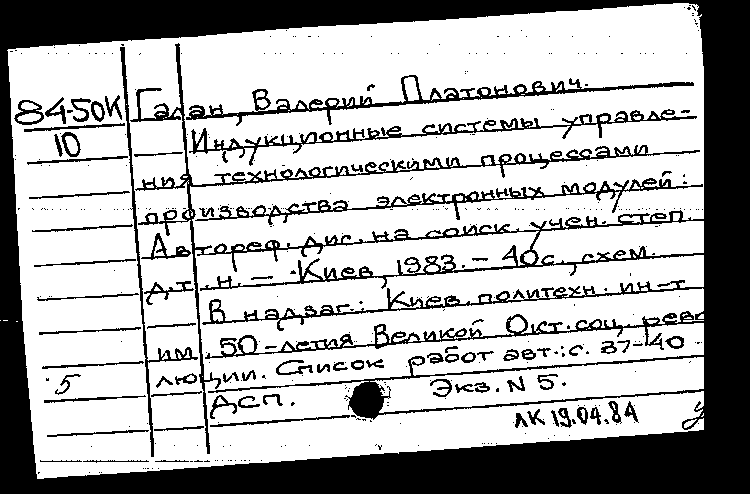 84-50К Галан, Валерий Платонович.
10 Индукционные системы управле-
ния технологическими процессами
производства электронных модулей:
Автореф. дис. на соиск. учен. степ.
д.т.н. - Киев, 1983. - 40с., схем.
В надзаг.: Киев. политехн. ин-т
им. 50-летия Великой Окт. соц. рево
люции. Список работ авт.: с. 37-40
5 ДСП. Экз. N 5.
ЛК 19.04.84